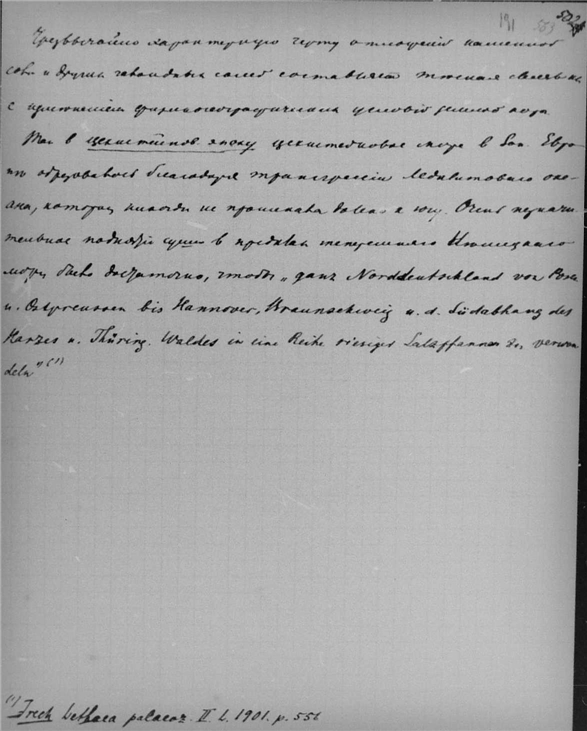 191 503 502
Чрезвычайно характерную черту отложений каменной
соли и других галоидных солей составляет тесная связь их
с изменением физикогеографических условий земной коры.
Так в цехштейнов. эпоху цехштейновое море в Зап. Евро-
пе образовалось благодаря трансгрессии Ледовитого оке-
ана, которая никогда не проникала далеко к югу. Очень незначи-
тельное поднятие суши в пределах теперешнего Немецкого
моря было достаточно, чтобы „ganz Norddeutschland von Posen
u. Ostpreussen bis Hannover, Braunschweig u. d. Südabhang des
Harzes u. Thüring. Waldes in eine Reihe riesiger Salzpfannen zu verwan
deln" (1)
(1) Frech Lethaea palaeoz. II L. 1901. p. 556